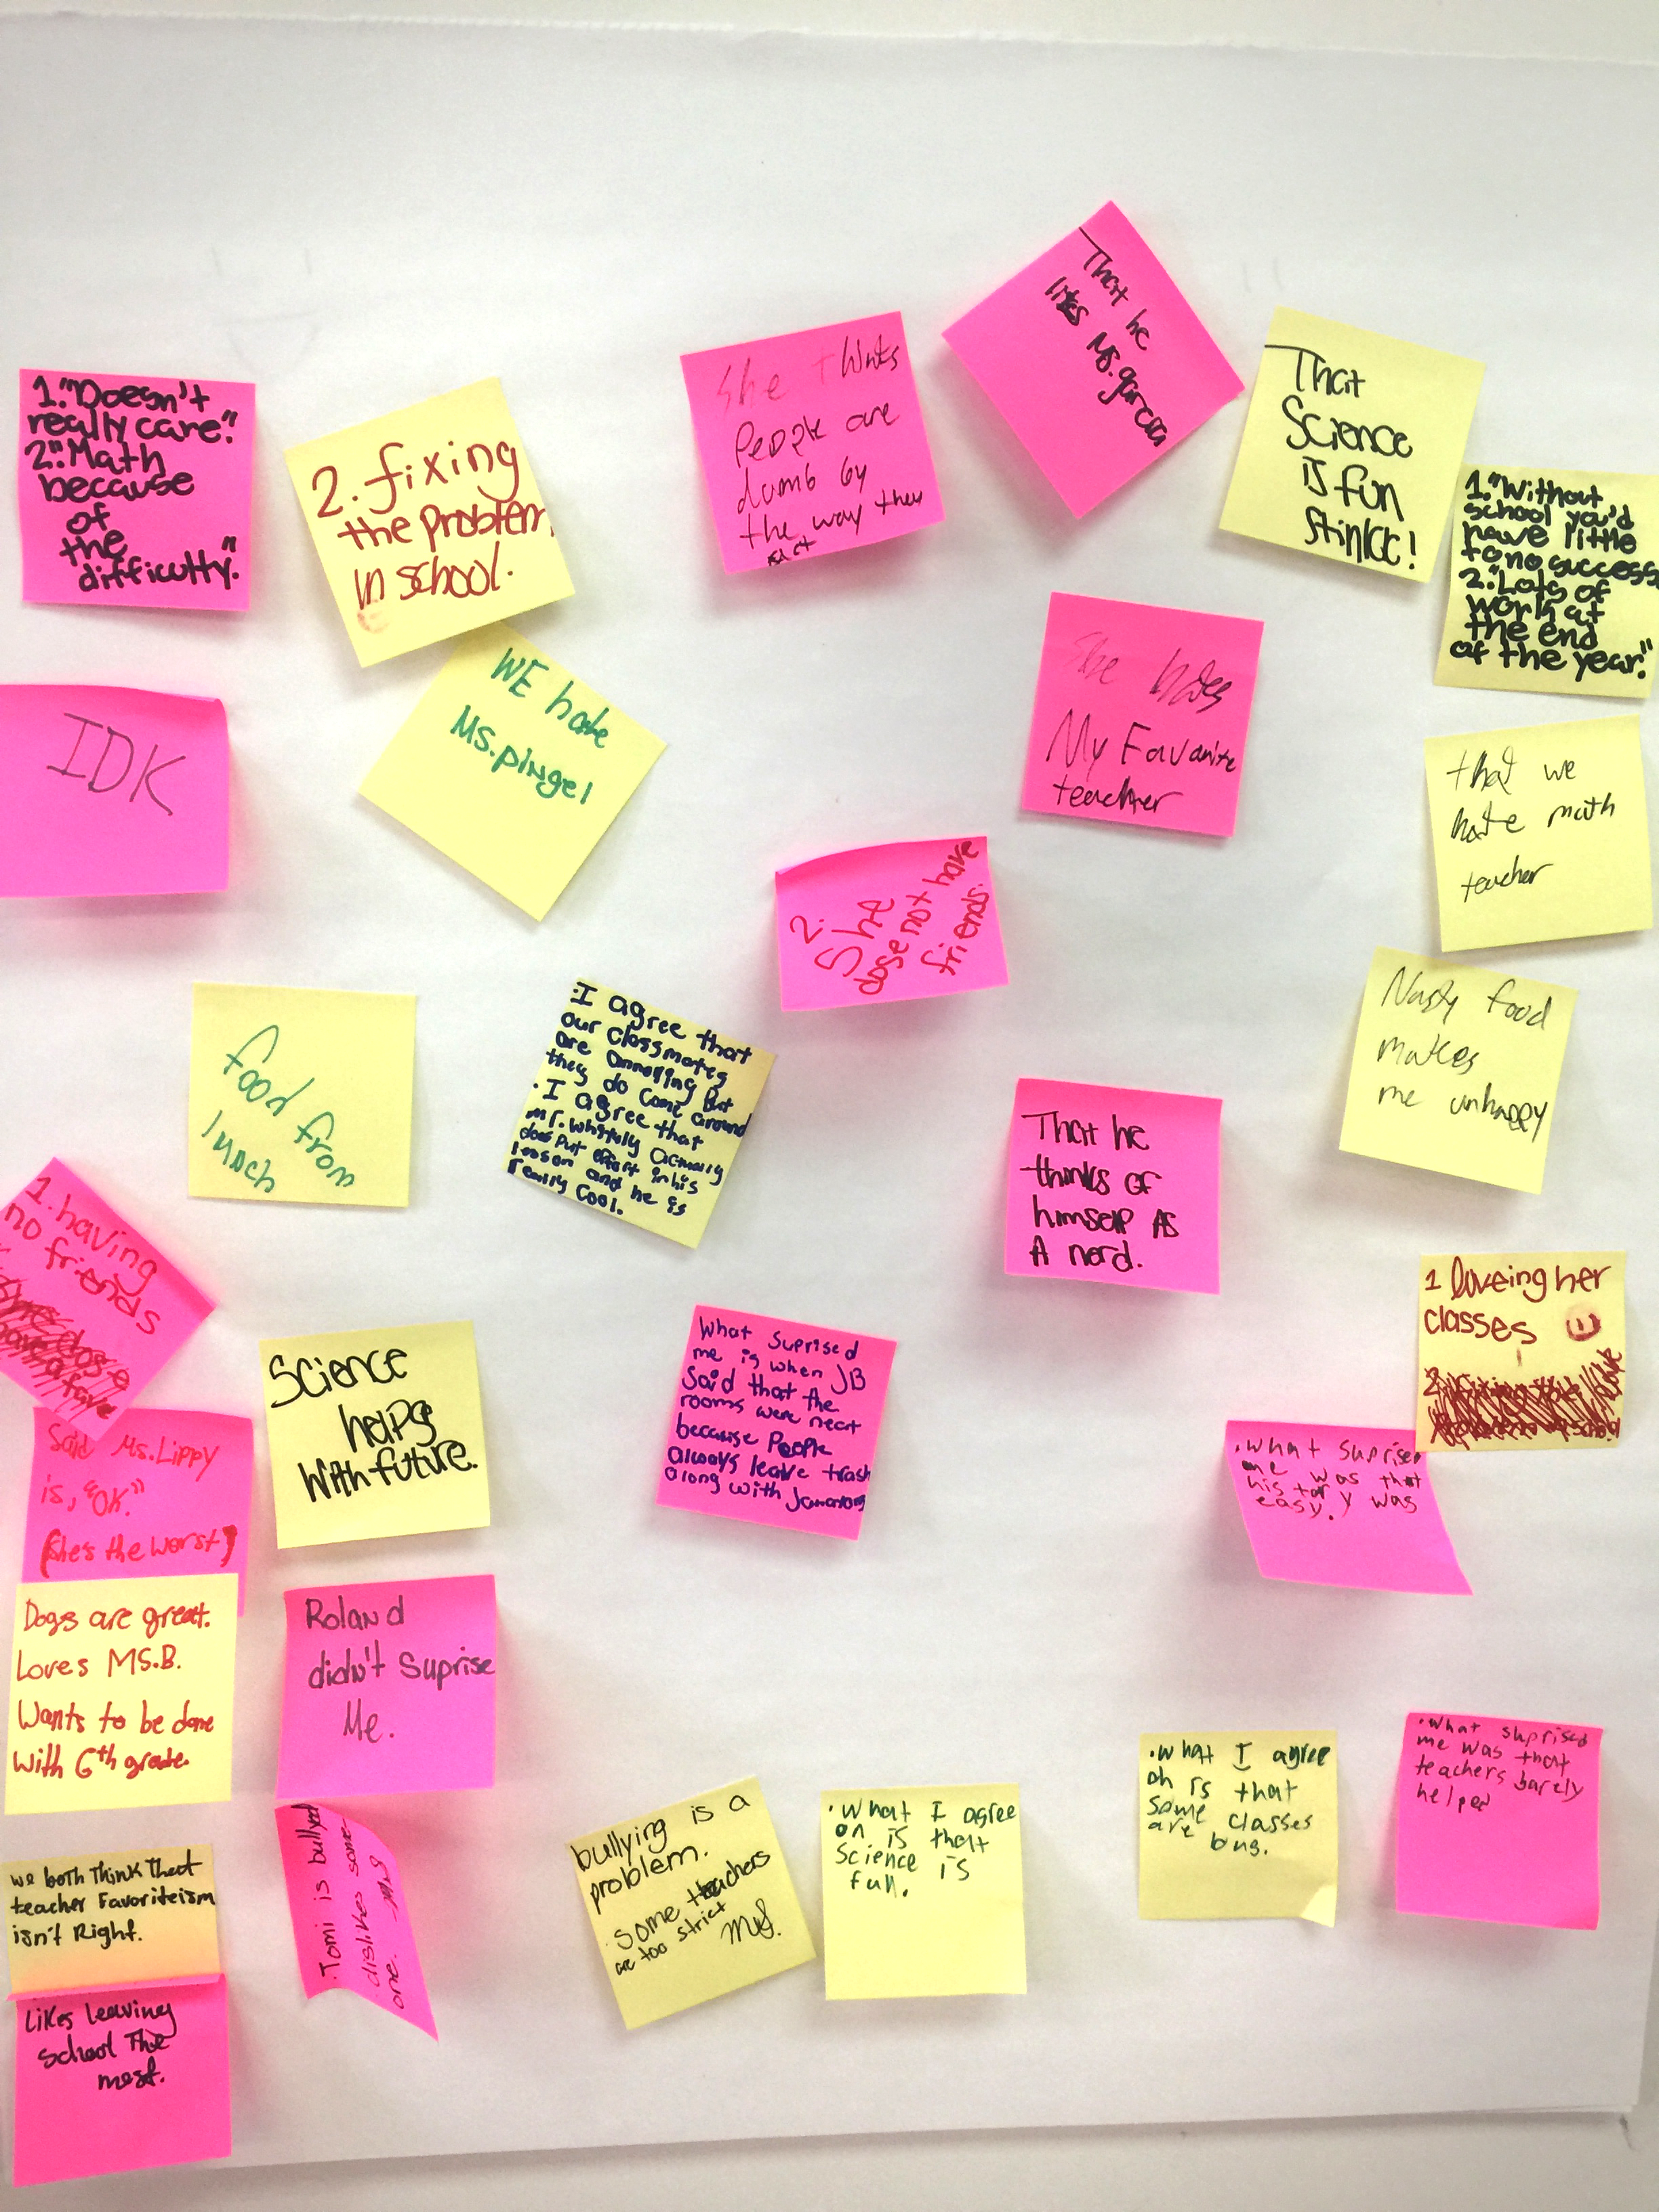 That he
likes Ms. garcia
She thinks
People are
dumb by
the way they
act
That
Science
is fun
stinkcc!
1."Doesn't
really care."
2."Math
because
of
the
difficulty."
2. fixing
the problem
in school.
1."Without
school you'd
have little
to no success
2."Lots of
work at
the end
of the year."
She hates
My Favorite
teacher
WE hate
MS.pingel
IDK
that we
hate math
teacher
2.
She
dose not have
friends.
Nasty food
makes
me unhappy
food from
lunch
I agree that
our classmates
are annoying but
they do come around
. I agree that
mr. whitely actually
does put effort in his
lesson and he is
really cool.
That he
thinks of
himself AS
A nerd.
1. having
no friends
1 loveing her
classes
What suprised
me is when JB
said that the
rooms were neat
because People
always leave trash
along with
Science
helps
with future.
Said Ms.Lippy
is, "OK."
(she's the worst)
.what suprised
me was that
history was
easy.
Dogs are great.
Loves MS.B.
Wants to be done
with 6th grade.
Roland
didn't Suprise
Me.
.what suprised
me was that
teachers barely
helped
.what I agree
on is that
some classes
are
bully​ing is a
problem.
. Some teachers
are too strict
MS.
.What I agree
on is that
Science is
fun.
.Tomi is bullyed
.dislikes some-
one. -MS
we both think that
teacher Favoriteism
isn't Right.
Likes leaving
school The
most.